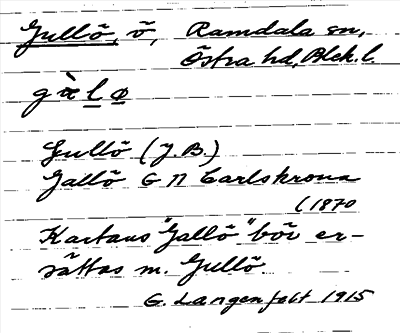 Gullö, ö, Ramdala sn,
Östra hd, Blek. l.
Gullö (J.B.)
Jallö G N Carlskrona
(1870
Kartans "Jallö" bör er-
sättas m. Gullö
G. Langenfelt 1915